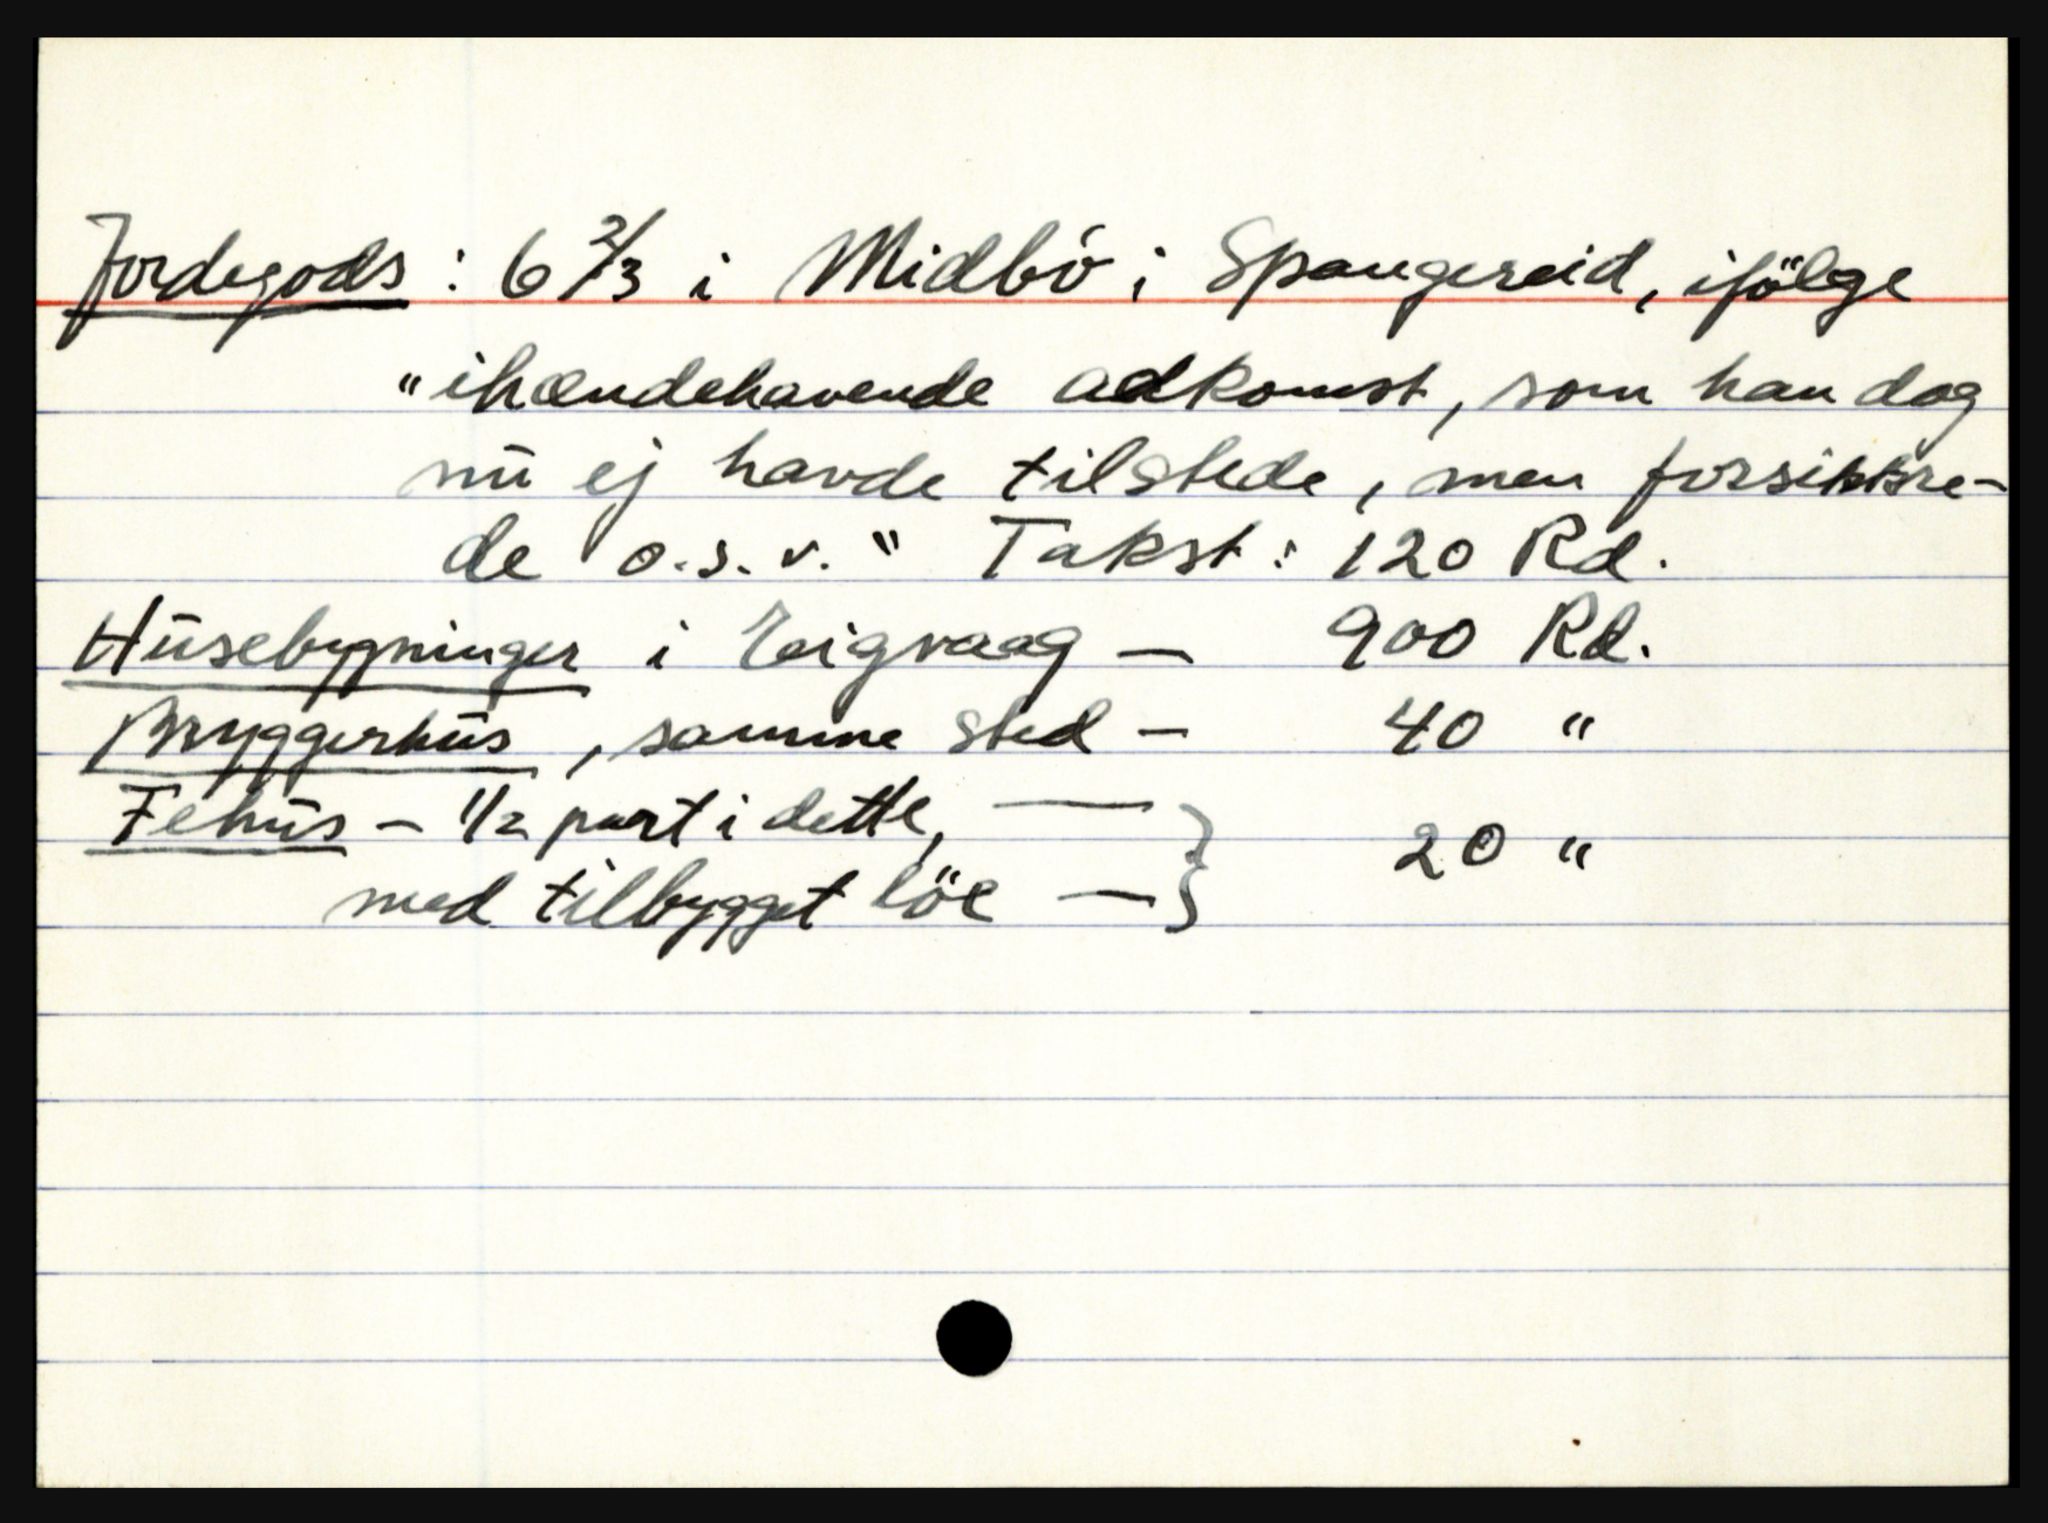 Jordegods : 6 2/3 i Midbö i Spangereid, ifölge
"ihændehavende adkomst, som han dog
nu ej havde tilstede, men forsikkre-
de o.s.v." Takst : 120 Rd.
Husebygninger i Eigvaag — 900 Rd.
Bryggerhus, samme sted — 40 "
Fehus - 1/2 part i dette, —
med tilbygget löe — } 20 "